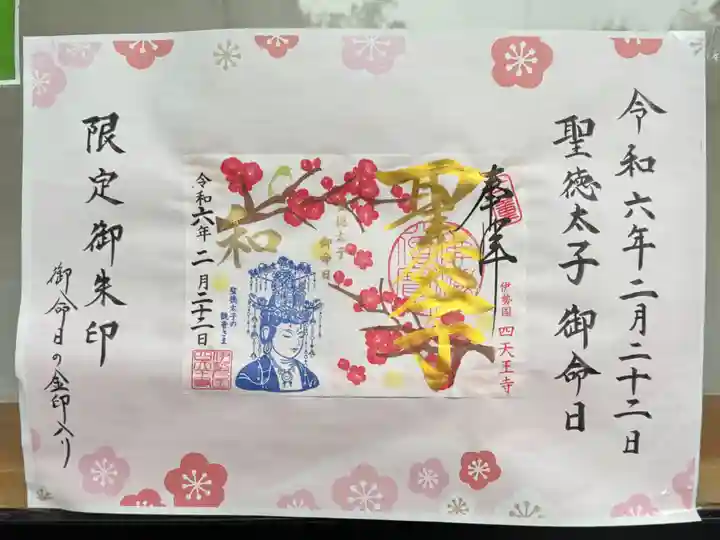 令和六年二月二十二日
聖徳太子 御命日
奉拝
伊勢国 四天王寺
聖太子
和
御命日
聖徳太子の
観音さま
令和六年二月二十二日
限定御朱印
御命日の金印入り